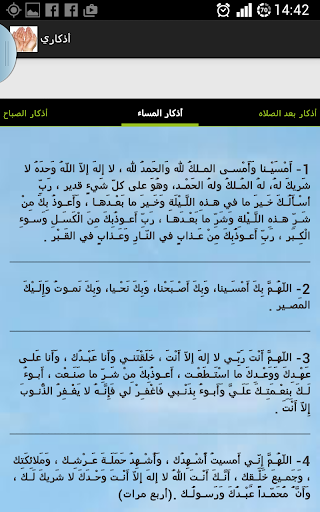 14:42
70
أذكاري
أذكار الصباح
أذكار المساء
أذكار بعد الصلاه
1- أَمْسَيْـنا وَأَمْسـى المـلكُ لله وَالحَمدُ لله ، لا إلهَ إلاّ اللّهُ وَحدَهُ لا
شَريكَ لهُ، لهُ المُـلكُ ولهُ الحَمْـد، وهُوَ على كلّ شَيءٍ قدير ، رَبِّ
أسْـأَلُـكَ خَـيرَ ما في هـذهِ اللَّـيْلَةِ وَخَـيرَ ما بَعْـدَهـا ، وَأَعـوذُ بِكَ مِنْ
شَـرِّ هـذهِ اللَّـيْلةِ وَشَرِّ ما بَعْـدَهـا ، رَبِّ أَعـوذُبِكَ مِنَ الْكَسَـلِ وَسـوءِ
الْكِـبَر ، رَبِّ أَعـوذُبِكَ مِنْ عَـذابٍ في النّـارِ وَعَـذابٍ في القَـبْر .
2- اللّهُـمَّ بِكَ أَمْسَـينا، وَبِكَ أَصْـبَحْنا، وَبِكَ نَحْـيا، وَبِكَ نَمـوتُ وَإِلَـيْكَ
المَـصير .
3- اللّهـمَّ أَنْتَ رَبِّـي لا إلهَ إلاّ أَنْتَ ، خَلَقْتَنـي وَأَنا عَبْـدُك ، وَأَنا عَلـى
عَهْـدِكَ وَوَعْـدِكَ ما اسْتَـطَعْـت ، أَعـوذُبِكَ مِنْ شَـرِّ ما صَنَـعْت ، أَبـوءُ
لَـكَ بِنِعْـمَتِـكَ عَلَـيَّ وَأَبـوءُ بِذَنْـبي فَاغْفِـرْ لي فَإِنَّـهُ لا يَغْـفِرُ الذُّنـوبَ
إِلاّ أَنْتَ .
4- اللّهُـمَّ إِنِّـي أَمسيتُ أُشْـهِدُك ، وَأُشْـهِدُ حَمَلَـةَ عَـرْشِـك ، وَمَلائِكَتَك
، وَجَمـيعَ خَلْـقِك ، أَنَّـكَ أَنْـتَ اللهُ لا إلهَ إلاّ أَنْـتَ وَحْـدَكَ لا شَريكَ لَـكَ ،
وَأَنَّ مُحَمّـداً عَبْـدُكَ وَرَسـولُـكَ .(أربع مرات)